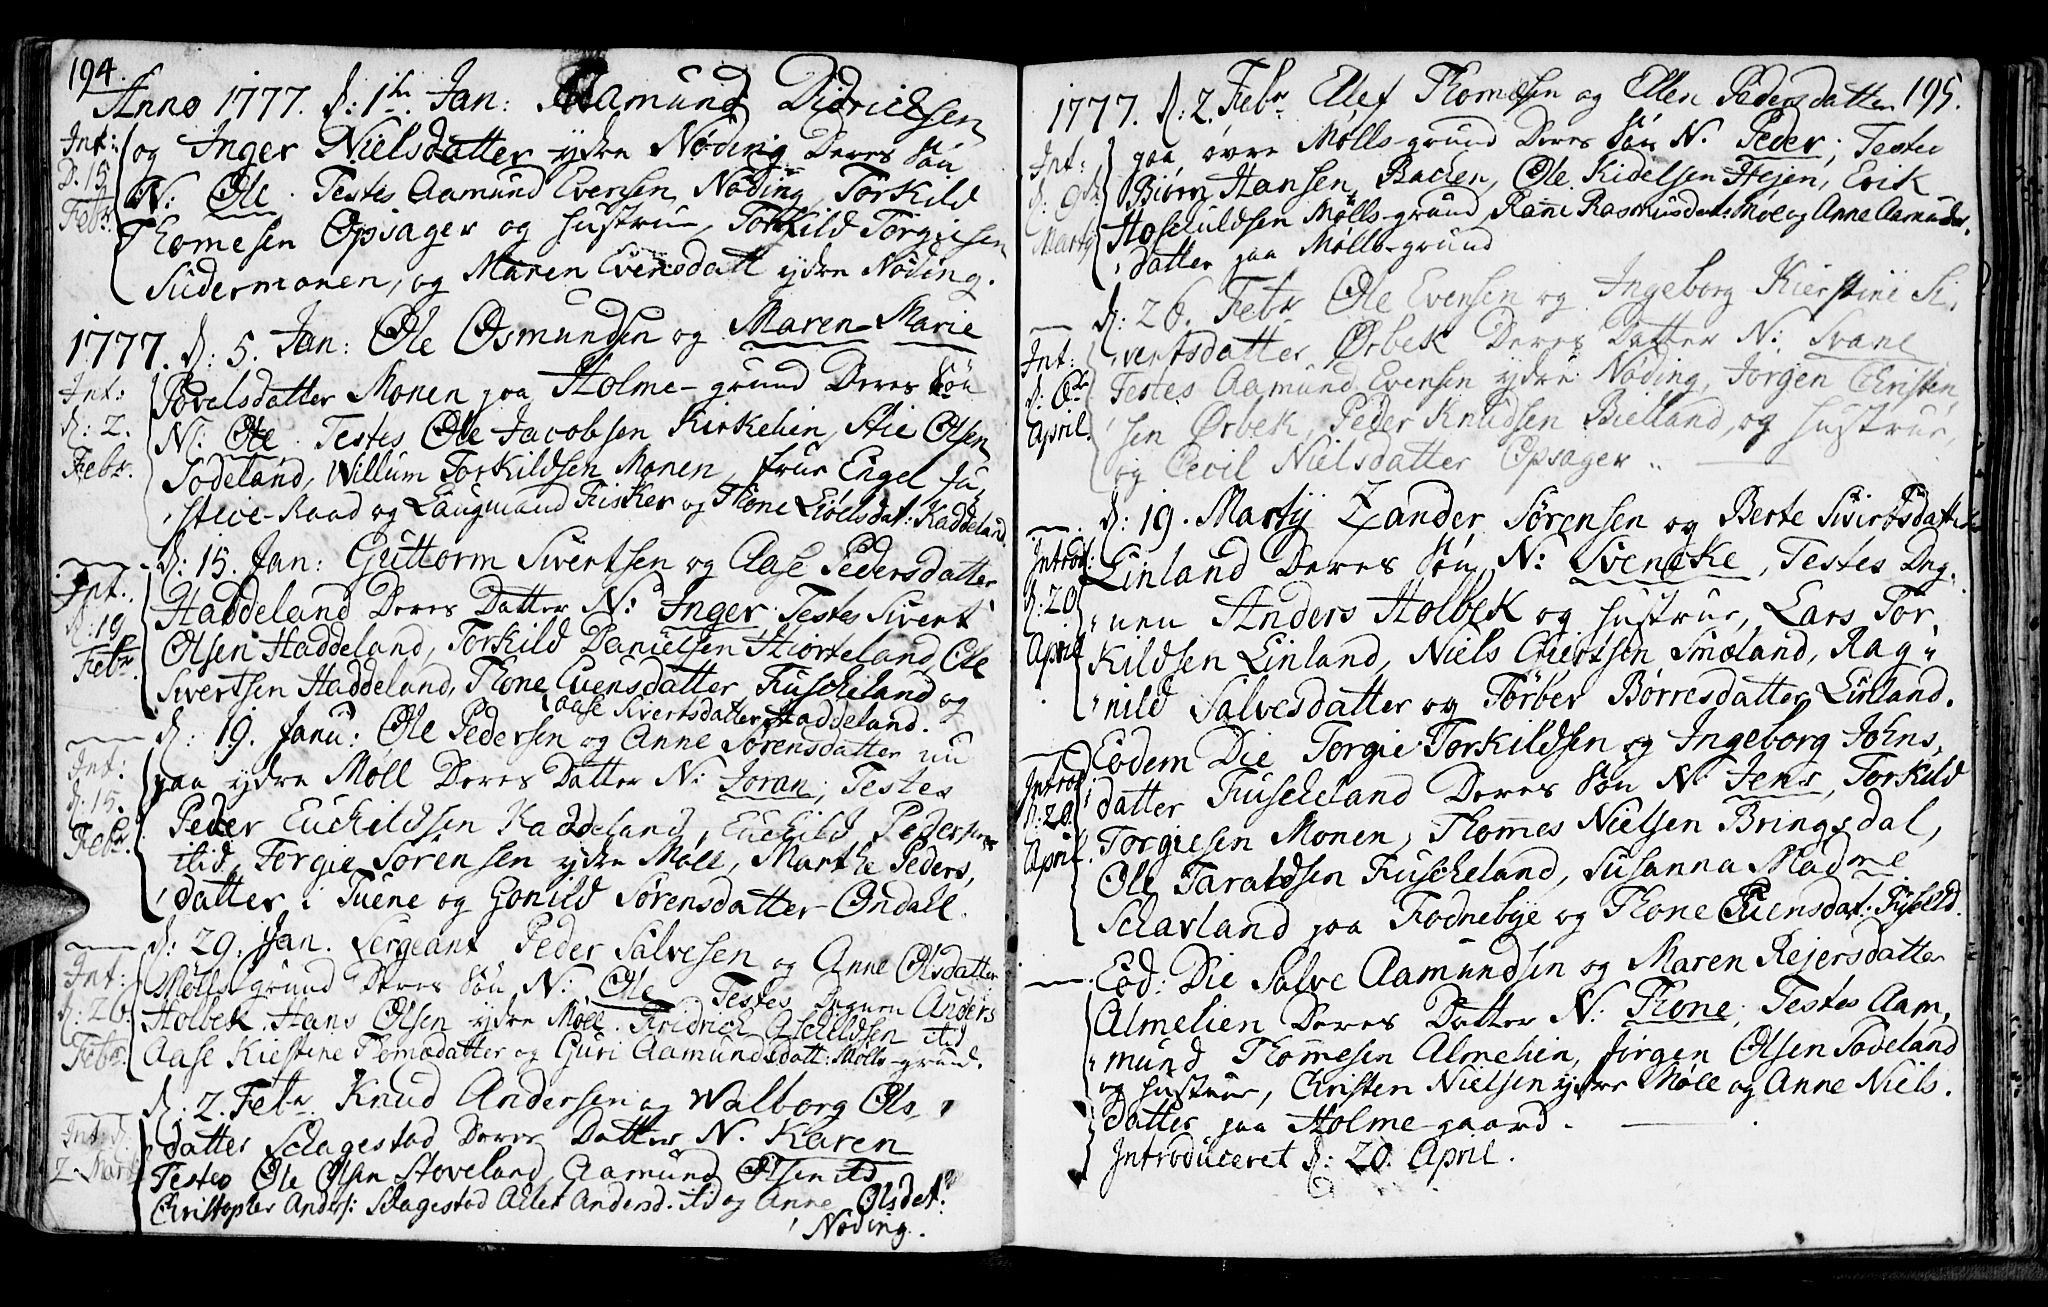 194.
Anno 1777. d: 1ste Jan: Aamund Didrichsen
Int:
D. 15
Febr.
og Inger Nielsdatter ydre Nøding Deres Søn
N: Ole. Testes Aamund Evensen Nøding, Torkild
Thomesen Opsager og Hustrue, Torkild Torgiesen
Sudermonen, og Maren Evensdatt ydre Nøding.
1777. d: 5. Jan: Ole Osmundsen og Maren Marie
Int:
d: 2.
Febr.
Povelsdatter Monen paa Holme-grund Deres Søn
N: Ole. Testes Ole Jacobsen Kirkelien, Stie Olsen
Sodeland, Willum Torkildsen Monen, frue Engel Ju,
stice-Raad og Laugmand Fisker og Thone Liøelsdat: Kaddeland.
d: 15. Jan: Guttorm Sivertsen og Aase Pedersdatter
Int.
d: 19
Febr.
Haddeland Deres Datter N: Inger. Testes Sivert
Olsen Haddeland, Torkild Danielsen Hiorteland, Ole
Sivertsen Haddeland, Thone Evensdatter Fuscheland og
Aase Sivertsdatter Haddeland.
d: 19. Janu: Ole Pedersen og Anne Sørensdatter nu
Int:
d: 15.
Febr.
paa ydre Møll Deres Datter N: Joran; Testes
Peder Euchildsen Kaddeland, Euchild Pedersen
itid, Torgie Sørensen ydre Møll, Martha Peders,
datter i Tuene og Gonild Sørensdatter Ondall.
d: 29. Jan. Sergeant Peder Salvesen og Anne Olsdatter
Int:
d: 26.
Febr.
Mølls grund Deres Søn N: Ole. Testes Degnen Anders
Holbek, Hans Olsen ydre Møll, Fridrich Aschildsen itid
Aase Kiestine Thomædatter og Guri Aamundsdatt: Mølls-grund.
d: 2. Febr. Knud Andersen og Walborg Ols,
Int: d.
2 Mart
datter Schagestad Deres Datter N. Karen
Testes Ole Olsen Stoveland, Aamund Olsen itd
Christopher Anders: Schagestad Allet Andersd. itid og Anne Olsdat:
Nøding.
195.
1777. d: 2. Febr Ellef Thomesen og Ellen Pedersdatter
Int:
d: 9de
Martij
paa øvre Mølls-grund Deres Søn N. Peder; Testes
Biørn Hansen Bachen, Ole Kidelsen Hejen, Erik
Hoschuldsen Mølls-grund, Ranni Rasmusdat: Moe og Anne Aamunds,
datter paa Mølls-grund
d: 26. Febr Ole Evensen og Ingeborg Kierstine Si,
Int:
d: 6te
April.
vertsdatter Ørbek Deres Datter N: Svane
Testes Aamund Evensen ydre Nøding, Jørgen Christen,
sen Ørbek, Peder Knudsen Bielland, og Hustrue,
og Cecil Nielsdatter Opsager.
d: 19. Martij Zander Sørensen og Berte Sivertsdatter
Introd:
d: 20
April
Linland Deres Søn N: Svencke, Testes Deg,
nen Anders Holbek og Hustrue, Lars Tor,
kildsen Linland, Niels Giertsen Smeland, Rag,
nild Salvesdatter og Torber Børresdatter Linland.
Eodem Die Torgie Torkildsen og Ingeborg Johns,
Introd
d: 20.
April
datter Fuscheland Deres Søn N: Jens, Torkild
Torgiesen Monen, Thommes Nielsen Bringsdal,
Ole Taraldsen Fuscheland, Susanna Madme
Schavland paa Fodnebye og Thone Evensdat: Fuscheld.
Eod: Die Salve Aamundsen og Maren Rejersdatter
Almelien Deres Datter N: Thone; Testes Aam,
mund Thommesen Almelien, Jørgen Olsen Sodeland
og Hustrue, Christen Nielsen ydre Møll og Anne Niels.
datter paa Holme-gaard.
Introduceret d: 20. April.